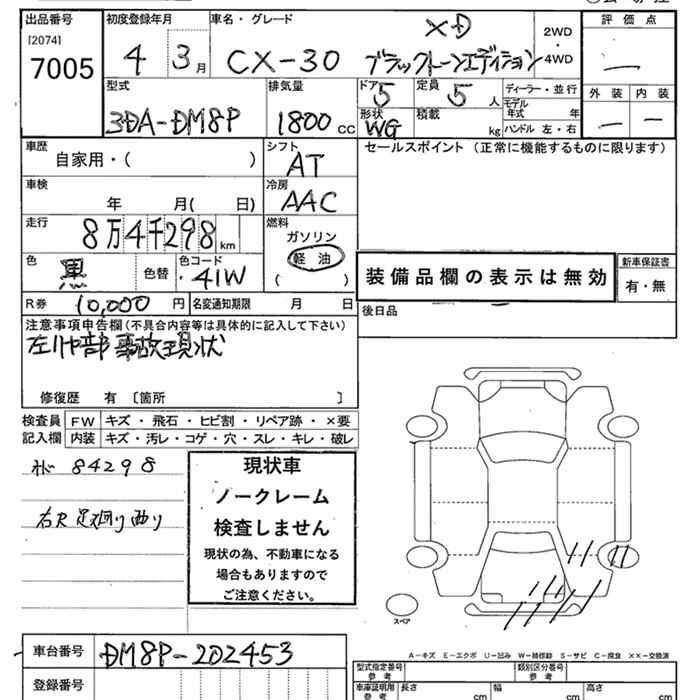 出品番号
[2074]
7005
初度登録年月
4 3 月
車名・グレード
XD
CX-30 ブラックトーンエディション
2WD
・
4WD
評価点
—
外装 内装
— —
型式
3DA-DM8P
排気量
1800 cc
ドア 5
定員 5 人
形状 WG
積載 kg
ディーラー・並行
モデル年式 年
ハンドル 左・右
車歴
自家用・( )
シフト
AT
セールスポイント(正常に機能するものに限ります)
車検
年 月( 日)
冷房
AAC
走行
8万4千298 km
燃料
ガソリン
軽油
( )
色
黒
色替
色コード
41W
装備品欄の表示は無効
新車保証書
有・無
R券 10,000 円
名変通知期限 月 日
後日品
注意事項申告欄(不具合内容等は具体的に記入して下さい)
事故現状
修復歴 有 〔箇所 〕
検査員記入欄
FW キズ・飛石・ヒビ割・リペア跡・×要
内装 キズ・汚レ・コゲ・穴・スレ・キレ・破レ
84298
右R 足廻り曲り
現状車
ノークレーム
検査しません
現状の為、不動車になる
場合もありますので
ご注意ください。
スペア
A-キズ E-エクボ U-凹み W-補修跡 S-サビ C-腐食 ××-交換済
車台番号 DM8P-202453
登録番号
型式指定番号
参考
類別区分番号
参考
車庫証明用
参考
長さ cm
幅 cm
高さ cm